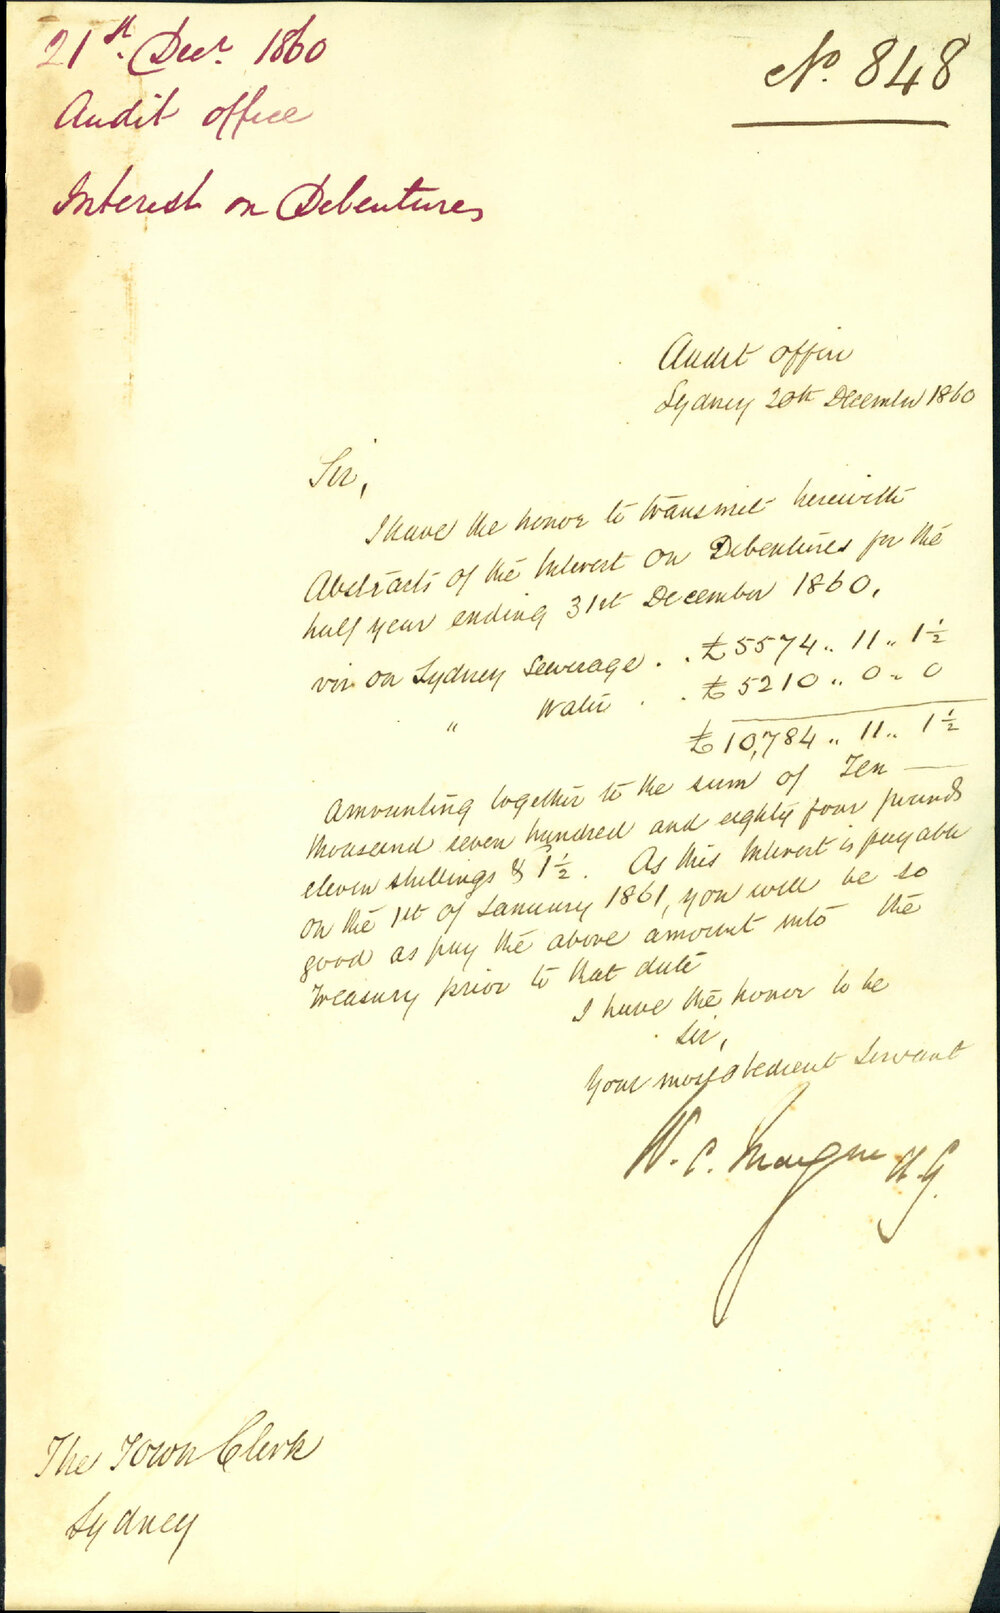 21st. Decr. 1860
No. 848
Audit office
Interest on Debentures
Audit office
Sydney 20th December 1860
Sir,
I have the honor to transmit herewith
Abstracts of the Interest on Debentures for the
half year ending 31st December 1860.
viz. on Sydney Sewerage . . £5574 " 11 " 1½
" Water . . £5210 " 0 " 0
£10,784 " 11 " 1½
Amounting together to the sum of Ten —
thousand seven hundred and eighty four pounds
eleven shillings & 1½. As this Interest is payable
on the 1st of January 1861, you will be so
good as pay the above amount into the
Treasury prior to that date
I have the honor to be
Sir,
Your most obedient Servant
W. C. Mayne A.G.
The Town Clerk
Sydney